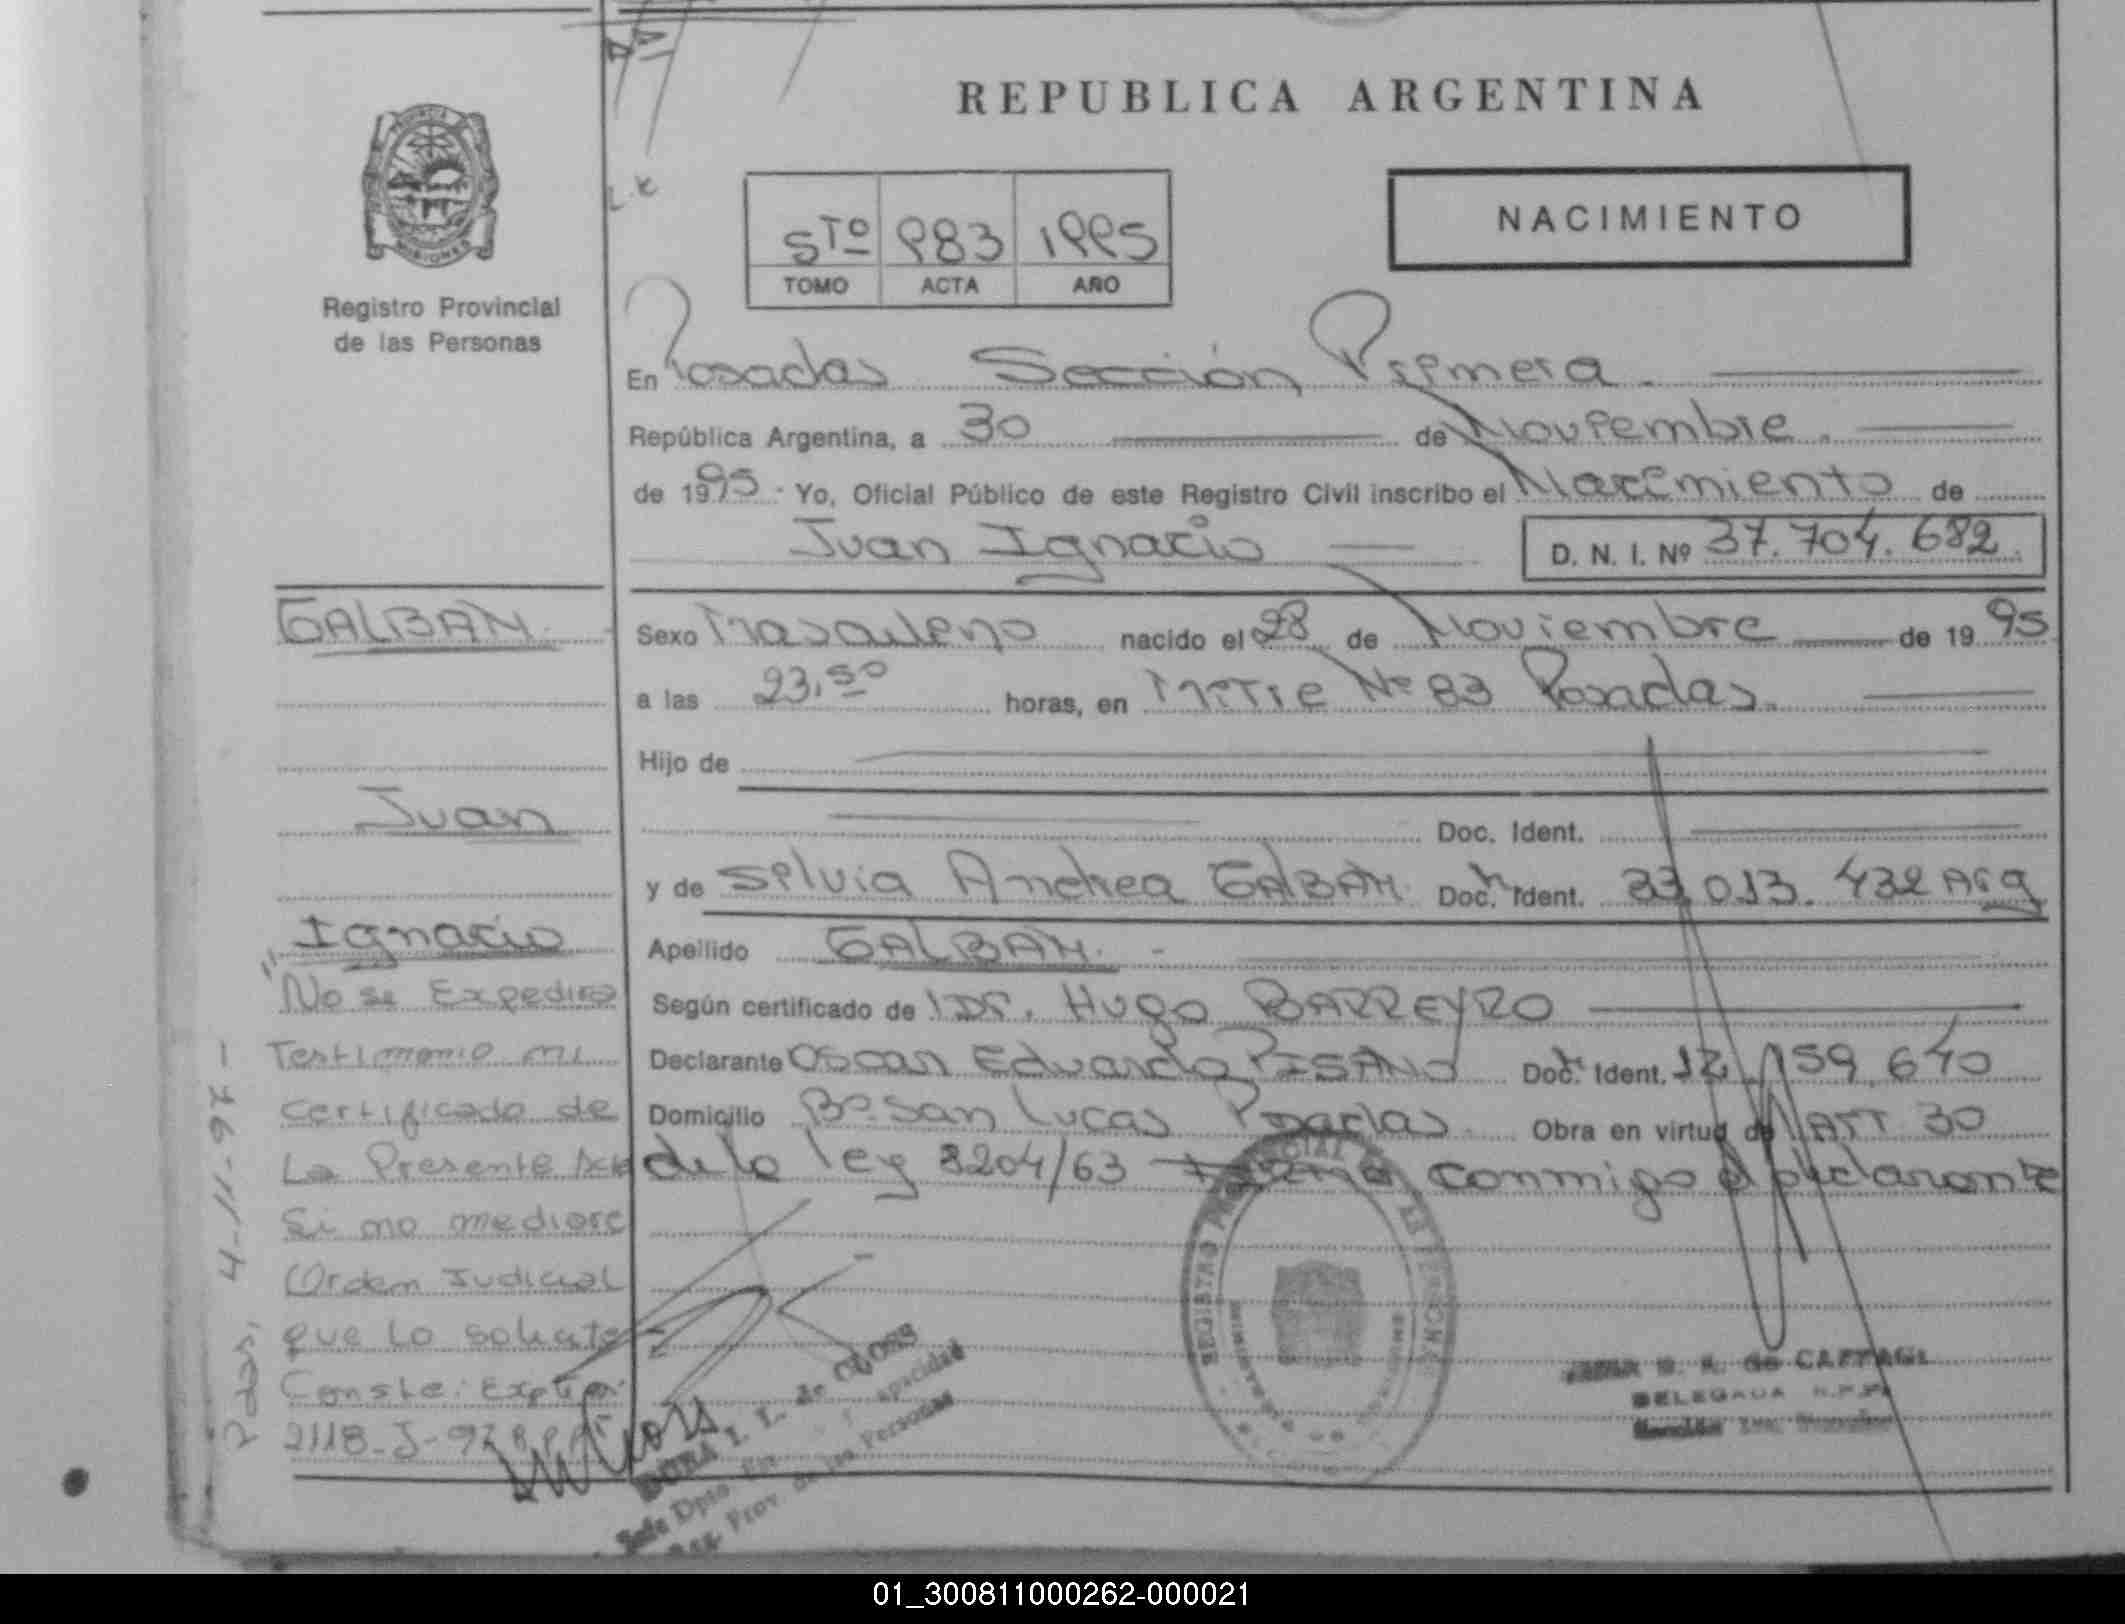 REPUBLICA ARGENTINA
NACIMIENTO
5to 983 1995
TOMO ACTA AÑO
L.K
Registro Provincial
de las Personas
En Posadas Sección Primera.
República Argentina, a 30 de Noviembre.
de 1995. Yo, Oficial Público de este Registro Civil inscribo el Nacimiento de
Juan Ignacio D. N. I. Nº 37.704.682.
Sexo Masculino nacido el 28 de Noviembre de 1995
a las 23,50 horas, en Mitre Nº 83 Posadas.
Hijo de
Doc. Ident.
y de Silvia Andrea GALBAN. Doc. Ident. 33.013.432 Arg
Apellido GALBAN.-
Según certificado de Dr. Hugo BARREYRO
Declarante Oscar Eduardo PISANO Doc. Ident. 12.159.640
Domicilio Bº San Lucas Posadas. Obra en virtud de Art 30
de la ley 8204/63 conmigo el declarante
GALBAN.
Juan
Ignacio
"No se Expedira
Testimonio ni
certificado de
La Presente Acta
Si no mediare
Orden Judicial
que Lo solicite
Conste: Expte
2118-J-97 R.P.P.
Pdas, 4-11-97-
REGISTRO PROVINCIAL DE LAS PERSONAS
DELEGADA R.P.P.
DORA I. L. de
Jefe Dpto
Reg. Prov. de las Personas
01_300811000262-000021